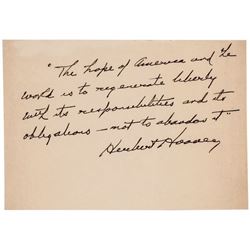 "The hope of America and the
world is to regenerate liberty
with its responsibilities and its
obligations – not to abandon it"
Herbert Hoover